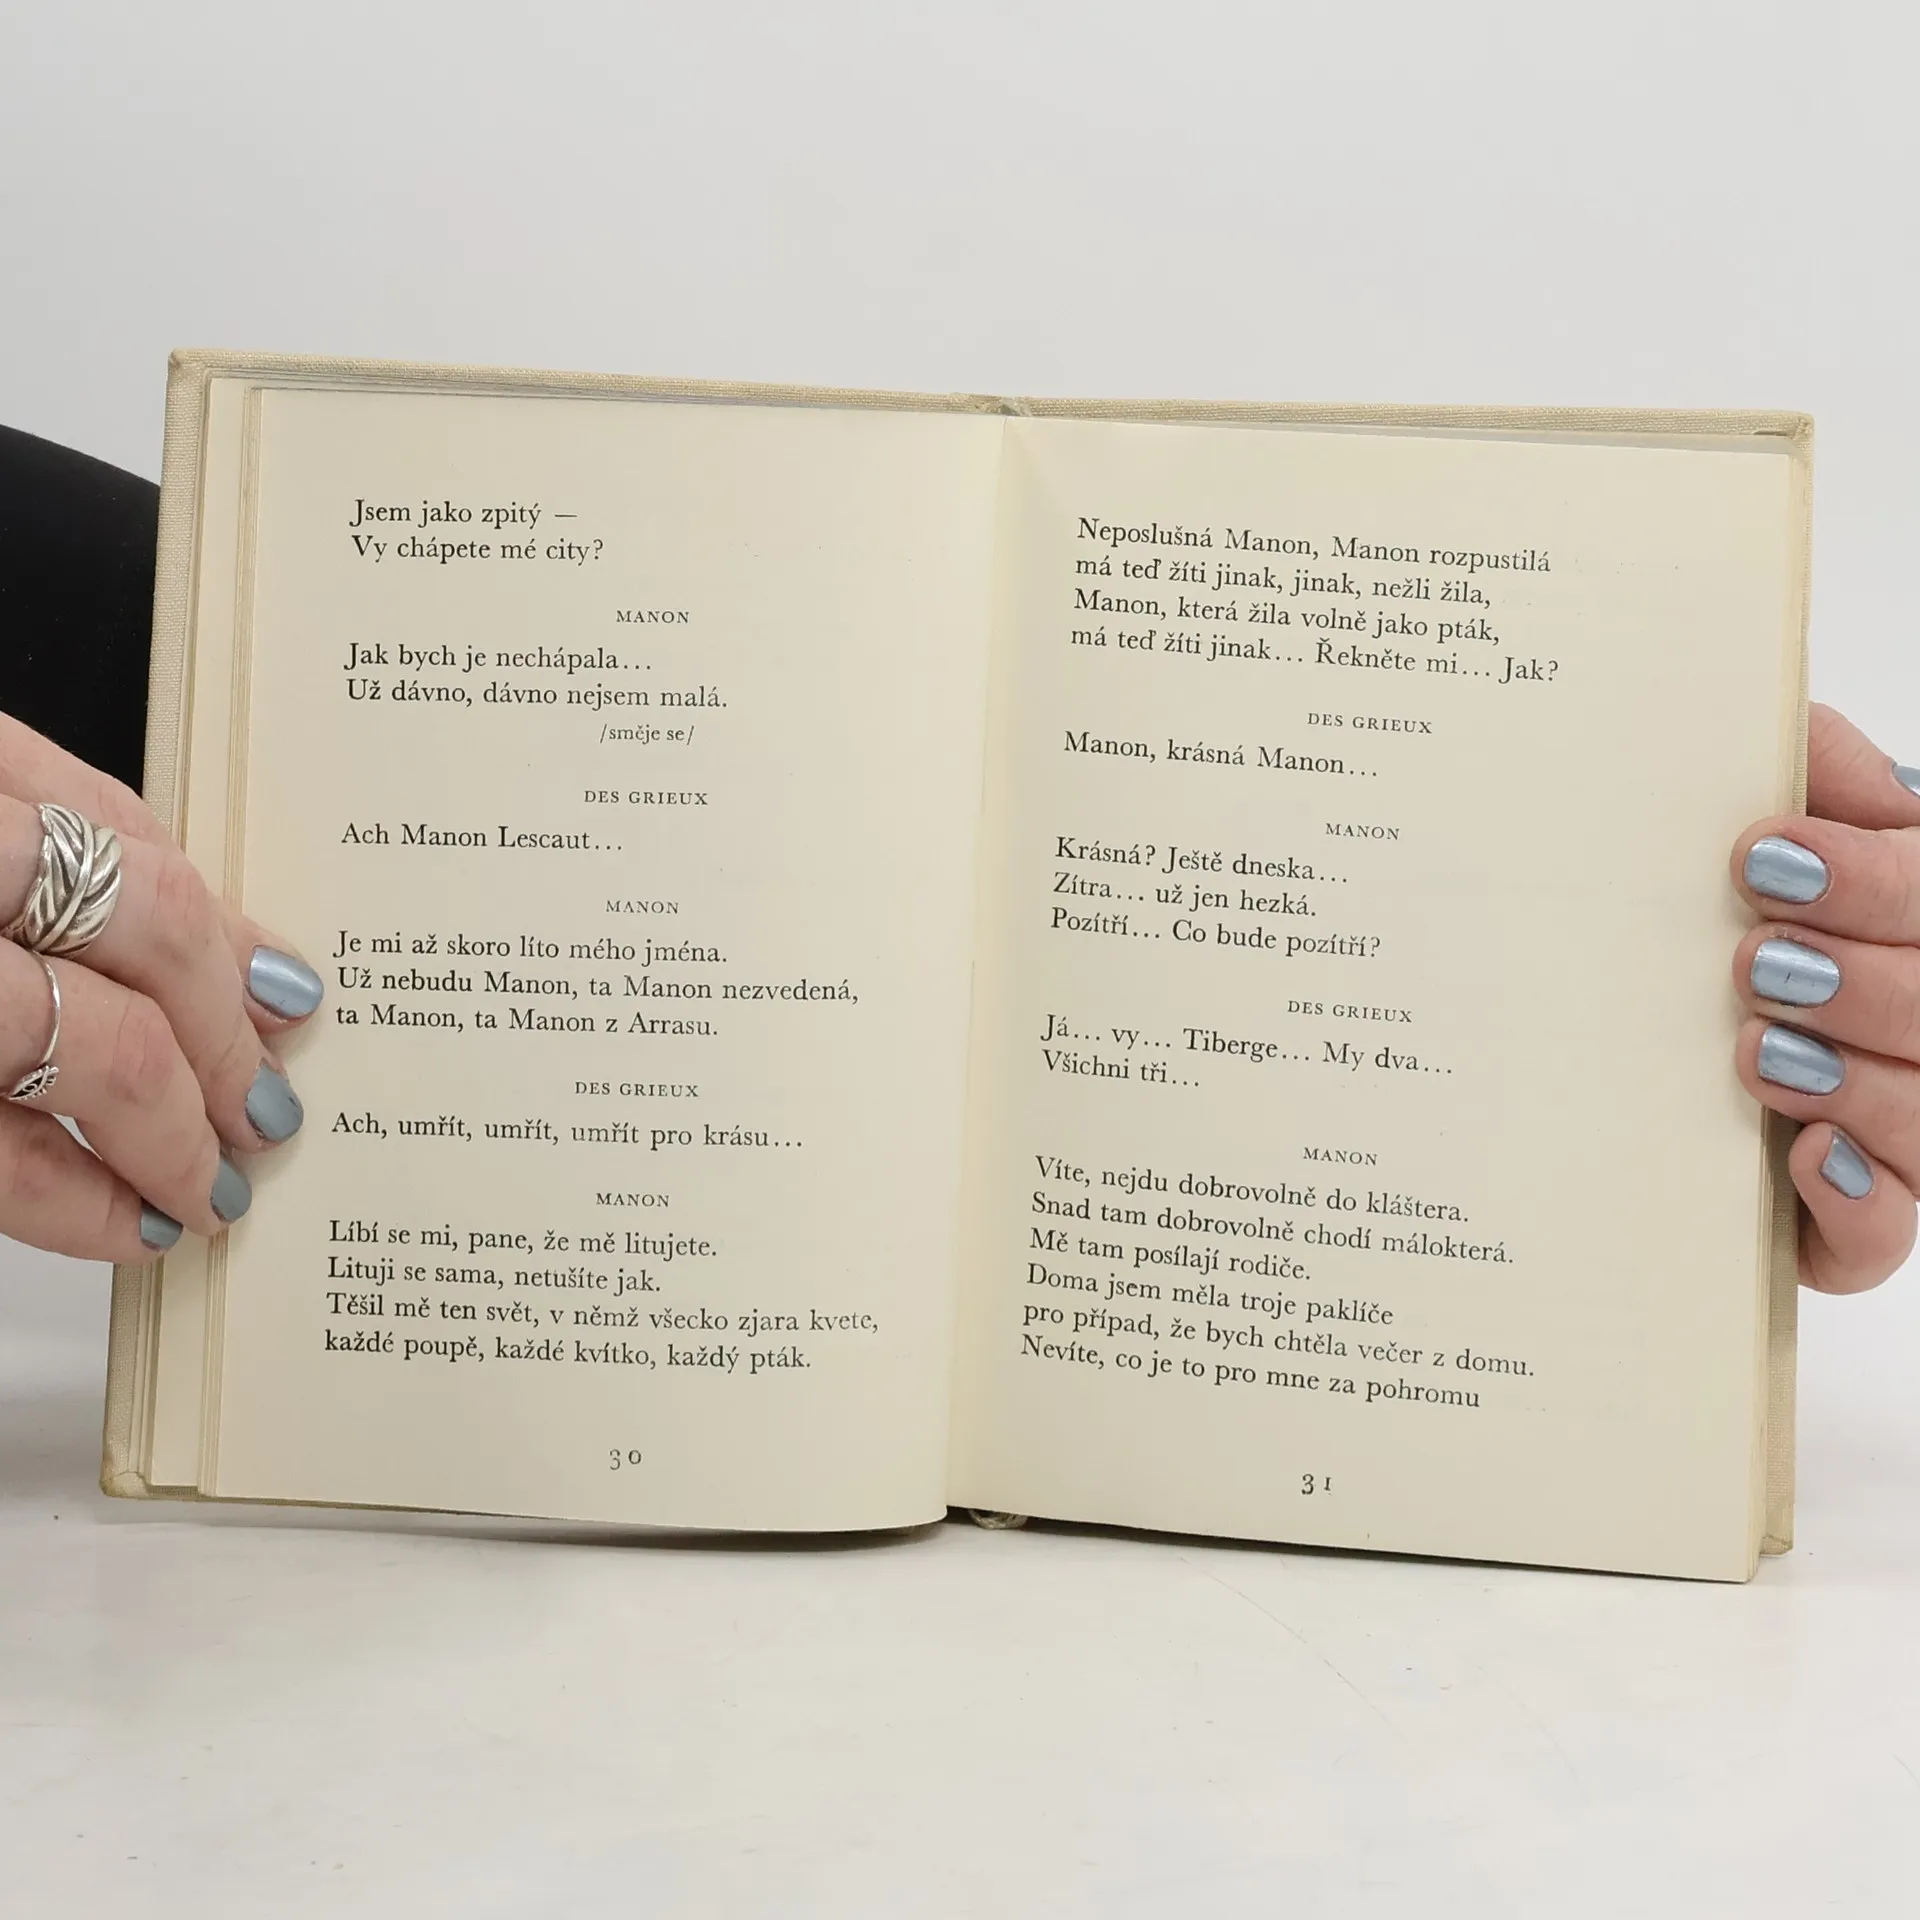 Jsem jako zpitý —
Vy chápete mé city?
MANON
Jak bych je nechápala...
Už dávno, dávno nejsem malá.
/směje se/
DES GRIEUX
Ach Manon Lescaut...
MANON
Je mi až skoro líto mého jména.
Už nebudu Manon, ta Manon nezvedená,
ta Manon, ta Manon z Arrasu.
DES GRIEUX
Ach, umřít, umřít, umřít pro krásu...
MANON
Líbí se mi, pane, že mě litujete.
Lituji se sama, netušíte jak.
Těšil mě ten svět, v němž všecko zjara kvete,
každé poupě, každé kvítko, každý pták.
30
Neposlušná Manon, Manon rozpustilá
má teď žíti jinak, jinak, nežli žila,
Manon, která žila volně jako pták,
má teď žíti jinak... Řekněte mi... Jak?
DES GRIEUX
Manon, krásná Manon...
MANON
Krásná? Ještě dneska...
Zítra... už jen hezká.
Pozítří... Co bude pozítří?
DES GRIEUX
Já... vy... Tiberge... My dva...
Všichni tři...
MANON
Víte, nejdu dobrovolně do kláštera.
Snad tam dobrovolně chodí málokterá.
Mě tam posílají rodiče.
Doma jsem měla troje paklíče
pro případ, že bych chtěla večer z domu.
Nevíte, co je to pro mne za pohromu
31